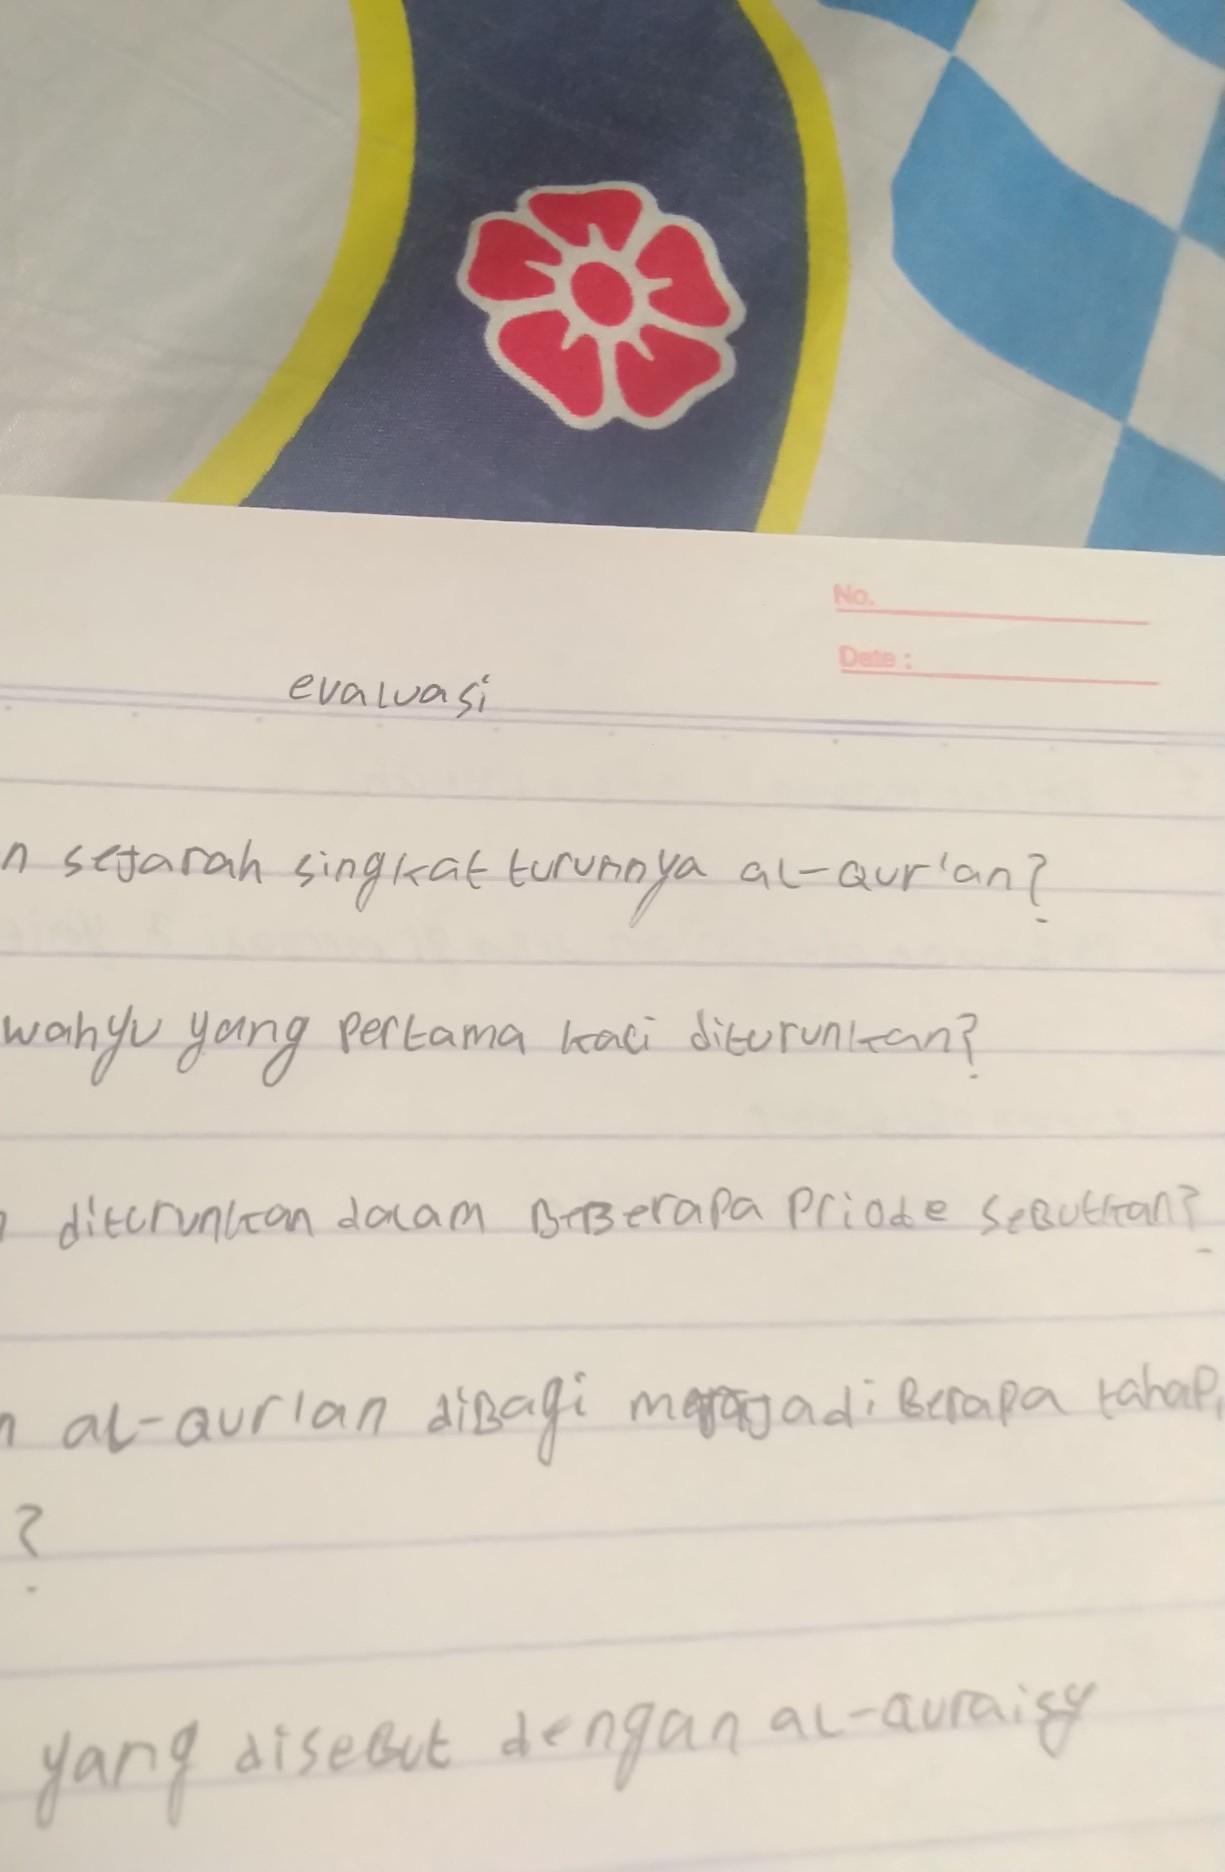 No.
Date :
evaluasi
n sejarah singkat turunnya al-Qur'an?
wahyu yang pertama kali diturunkan?
diturunkan dalam BeBerapa Priode seButkan?
n al-qur'an diBagi menjadi Berapa tahap,
?
yang diseBut dengan al-quraisy